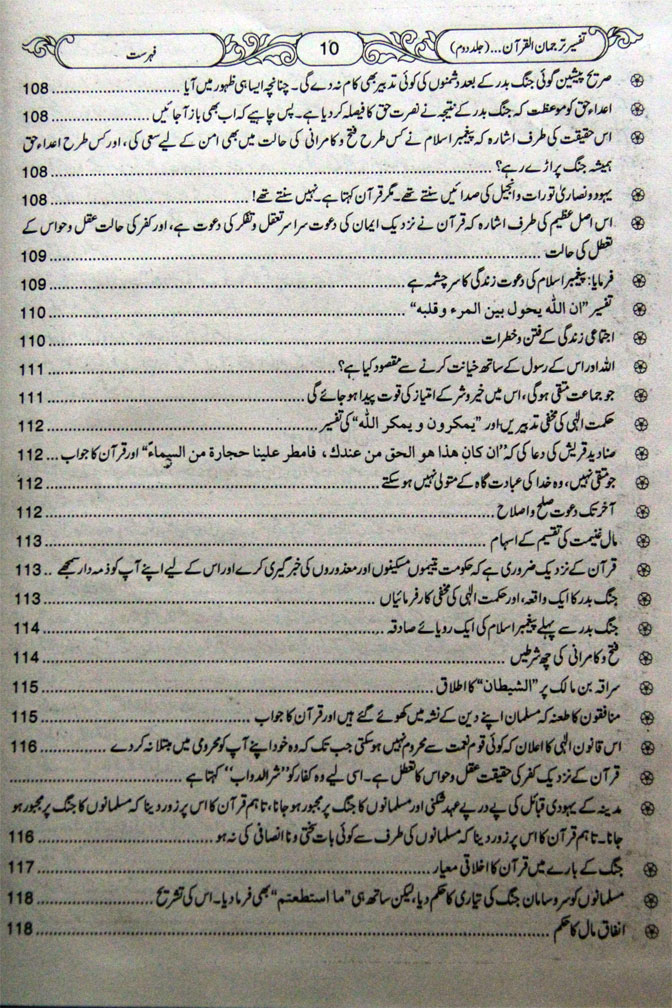 تفسیر ترجمان القرآن... (جلد دوم)
10
فہرست
صریح پیشین گوئی جنگ بدر کے بعد دشمنوں کی کوئی تدبیر بھی کام نہ دے گی۔ چنانچہ ایسا ہی ظہور میں آیا ........ 108
اعداء حق کو موعظت کہ جنگ بدر کے نتیجہ نے نصرت حق کا فیصلہ کر دیا ہے۔ پس چاہیے کہ اب بھی باز آ جائیں ........ 108
اس حقیقت کی طرف اشارہ کہ پیغمبر اسلام نے کس طرح فتح و کامرانی کی حالت میں بھی امن کے لیے سعی کی، اور کس طرح اعداء حق
ہمیشہ جنگ پر اڑے رہے؟ ........ 108
یہود و نصاریٰ تورات و انجیل کی صدائیں سنتے تھے۔ مگر قرآن کہتا ہے۔ نہیں سنتے تھے! ........ 108
اس اصل عظیم کی طرف اشارہ کہ قرآن نے نزدیک ایمان کی دعوت سراسر تعقل و تفکر کی دعوت ہے، اور کفر کی حالت عقل و حواس کے
تعطل کی حالت ........ 109
فرمایا: پیغمبر اسلام کی دعوت زندگی کا سرچشمہ ہے ........ 109
تفسیر ”ان اللّٰه یحول بین المرء وقلبه“ ........ 110
اجتماعی زندگی کے فتن و خطرات ........ 110
اللہ اور اس کے رسول کے ساتھ خیانت کرنے سے مقصود کیا ہے؟ ........ 111
جو جماعت متقی ہوگی، اس میں خیر و شر کے امتیاز کی قوت پیدا ہو جائے گی ........ 111
حکمت الٰہی کی مخفی تدبیریں اور ”یمکرون و یمکر اللّٰه“ کی تفسیر ........ 112
صنادید قریش کی دعا کی کہ ”ان کان هذا هو الحق من عندك، فامطر علینا حجارة من السماء“ اور قرآن کا جواب ... 112
جو متقی نہیں، وہ خدا کی عبادت گاہ کے متولی نہیں ہو سکتے ........ 112
آخر تک دعوت صلح و اصلاح ........ 112
مال غنیمت کی تقسیم کے اسہام ........ 113
قرآن کے نزدیک ضروری ہے کہ حکومت یتیموں مسکینوں اور معذوروں کی خبر گیری کرے اور اس کے لیے اپنے آپ کو ذمہ دار سمجھے .. 113
جنگ بدر کا ایک واقعہ، اور حکمت الٰہی کی مخفی کارفرمائیاں ........ 113
جنگ بدر سے پہلے پیغمبر اسلام کی ایک رویائے صادقہ ........ 114
فتح و کامرانی کی چھ شرطیں ........ 114
سراقہ بن مالک پر ”الشیطان“ کا اطلاق ........ 115
منافقون کا طعنہ کہ مسلمان اپنے دین کے نشہ میں کھوئے گئے ہیں اور قرآن کا جواب ........ 115
اس قانون الٰہی کا اعلان کہ کوئی قوم نعمت سے محروم نہیں ہو سکتی جب تک کہ وہ خود اپنے آپ کو محرومی میں مبتلا نہ کر دے ........ 116
قرآن کے نزدیک کفر کی حقیقت عقل و حواس کا تعطل ہے۔ اسی لیے وہ کفار کو ”شر الدواب“ کہتا ہے ........
مدینہ کے یہودی قبائل کی پے در پے عہد شکنی اور مسلمانوں کا جنگ پر مجبور ہو جانا، تاہم قرآن کا اس پر زور دینا کہ مسلمانوں کا جنگ پر مجبور ہو
جانا۔ تاہم قرآن کا اس پر زور دینا کہ مسلمانوں کی طرف سے کوئی بات سختی و نا انصافی کی نہ ہو ........ 116
جنگ کے بارے میں قرآن کا اخلاقی معیار ........ 117
مسلمانوں کو سر و سامان جنگ کی تیاری کا حکم دیا، لیکن ساتھ ہی ”ما استطعتم“ بھی فرما دیا۔ اس کی تشریح ........ 118
انفاق مال کا حکم ........ 118